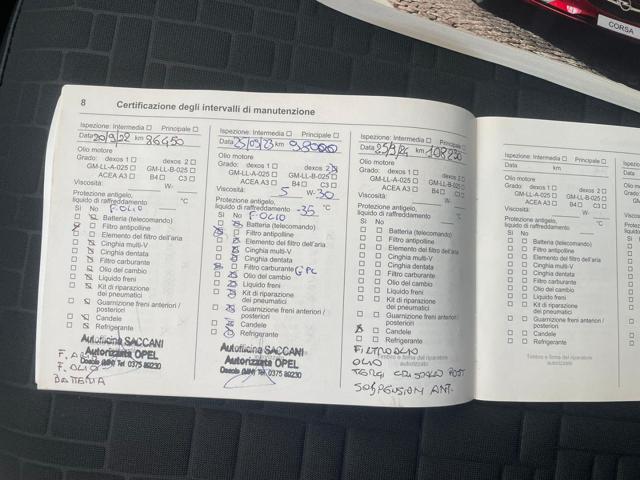 CORSA
8 Certificazione degli intervalli di manutenzione
Ispezione: Intermedia ☐ Principale ☐
Data 20/9/22 km 86450
Olio motore
Grado: dexos 1 ☐ dexos 2 ☐
GM-LL-A-025 ☐ GM-LL-B-025 ☐
ACEA A3 ☐ B4 ☐ C3 ☐
Viscosità: W-
Protezione antigelo,
liquido di raffreddamento °C
Sì No F. OLIO
Batteria (telecomando)
Filtro antipolline
Elemento del filtro dell'aria
Cinghia multi-V
Cinghia dentata
Filtro carburante
Olio del cambio
Liquido freni
Kit di riparazione
dei pneumatici
Guarnizione freni anteriori /
posteriori
Candele
Refrigerante
Autofficina SACCANI
Autorizzata OPEL
Tel. 0375 89230
F. OLIO
BATTERIA
Ispezione: Intermedia ☐ Principale ☐
Data 25/09/23 km 98000
Olio motore
Grado: dexos 1 ☐ dexos 2
GM-LL-A-025 ☐ GM-LL-B-025 ☐
ACEA A3 ☐ B4 ☐ C3 ☐
Viscosità: 5 W-30
Protezione antigelo,
liquido di raffreddamento -35 °C
Sì No F. OLIO
Batteria (telecomando)
Filtro antipolline
Elemento del filtro dell'aria
Cinghia multi-V
Cinghia dentata
Filtro carburante GPL
Olio del cambio
Liquido freni
Kit di riparazione
dei pneumatici
Guarnizione freni anteriori /
posteriori
Candele
Refrigerante
Autofficina SACCANI
Autorizzata OPEL
Tel. 0375 89230
Ispezione: Intermedia ☐ Principale ☐
Data km 108250
Olio motore
Grado: dexos 1 ☐ dexos 2 ☐
GM-LL-A-025 ☐ GM-LL-B-025 ☐
ACEA A3 ☐ B4 ☐ C3 ☐
Viscosità: W-
Protezione antigelo,
liquido di raffreddamento °C
Sì No
Batteria (telecomando)
Filtro antipolline
Elemento del filtro dell'aria
Cinghia multi-V
Cinghia dentata
Filtro carburante
Olio del cambio
Liquido freni
Kit di riparazione
dei pneumatici
Guarnizione freni anteriori /
posteriori
Candele
Refrigerante
FILTRO OLIO
OLIO
TERGI CRISTALLO POST
SOSPENSIONI ANT.
Ispezione: Intermedia ☐ Principale ☐
Data km
Olio motore
Grado: dexos 1 ☐ dexos 2 ☐
GM-LL-A-025 ☐ GM-LL-B-025 ☐
ACEA A3 ☐ B4 ☐ C3 ☐
Viscosità: W-
Protezione antigelo,
liquido di raffreddamento °C
Sì No
Batteria (telecomando)
Filtro antipolline
Elemento del filtro dell'aria
Cinghia multi-V
Cinghia dentata
Filtro carburante
Olio del cambio
Liquido freni
Kit di riparazione
dei pneumatici
Guarnizione freni anteriori /
posteriori
Candele
Refrigerante
Timbro e firma del riparatore
autorizzato